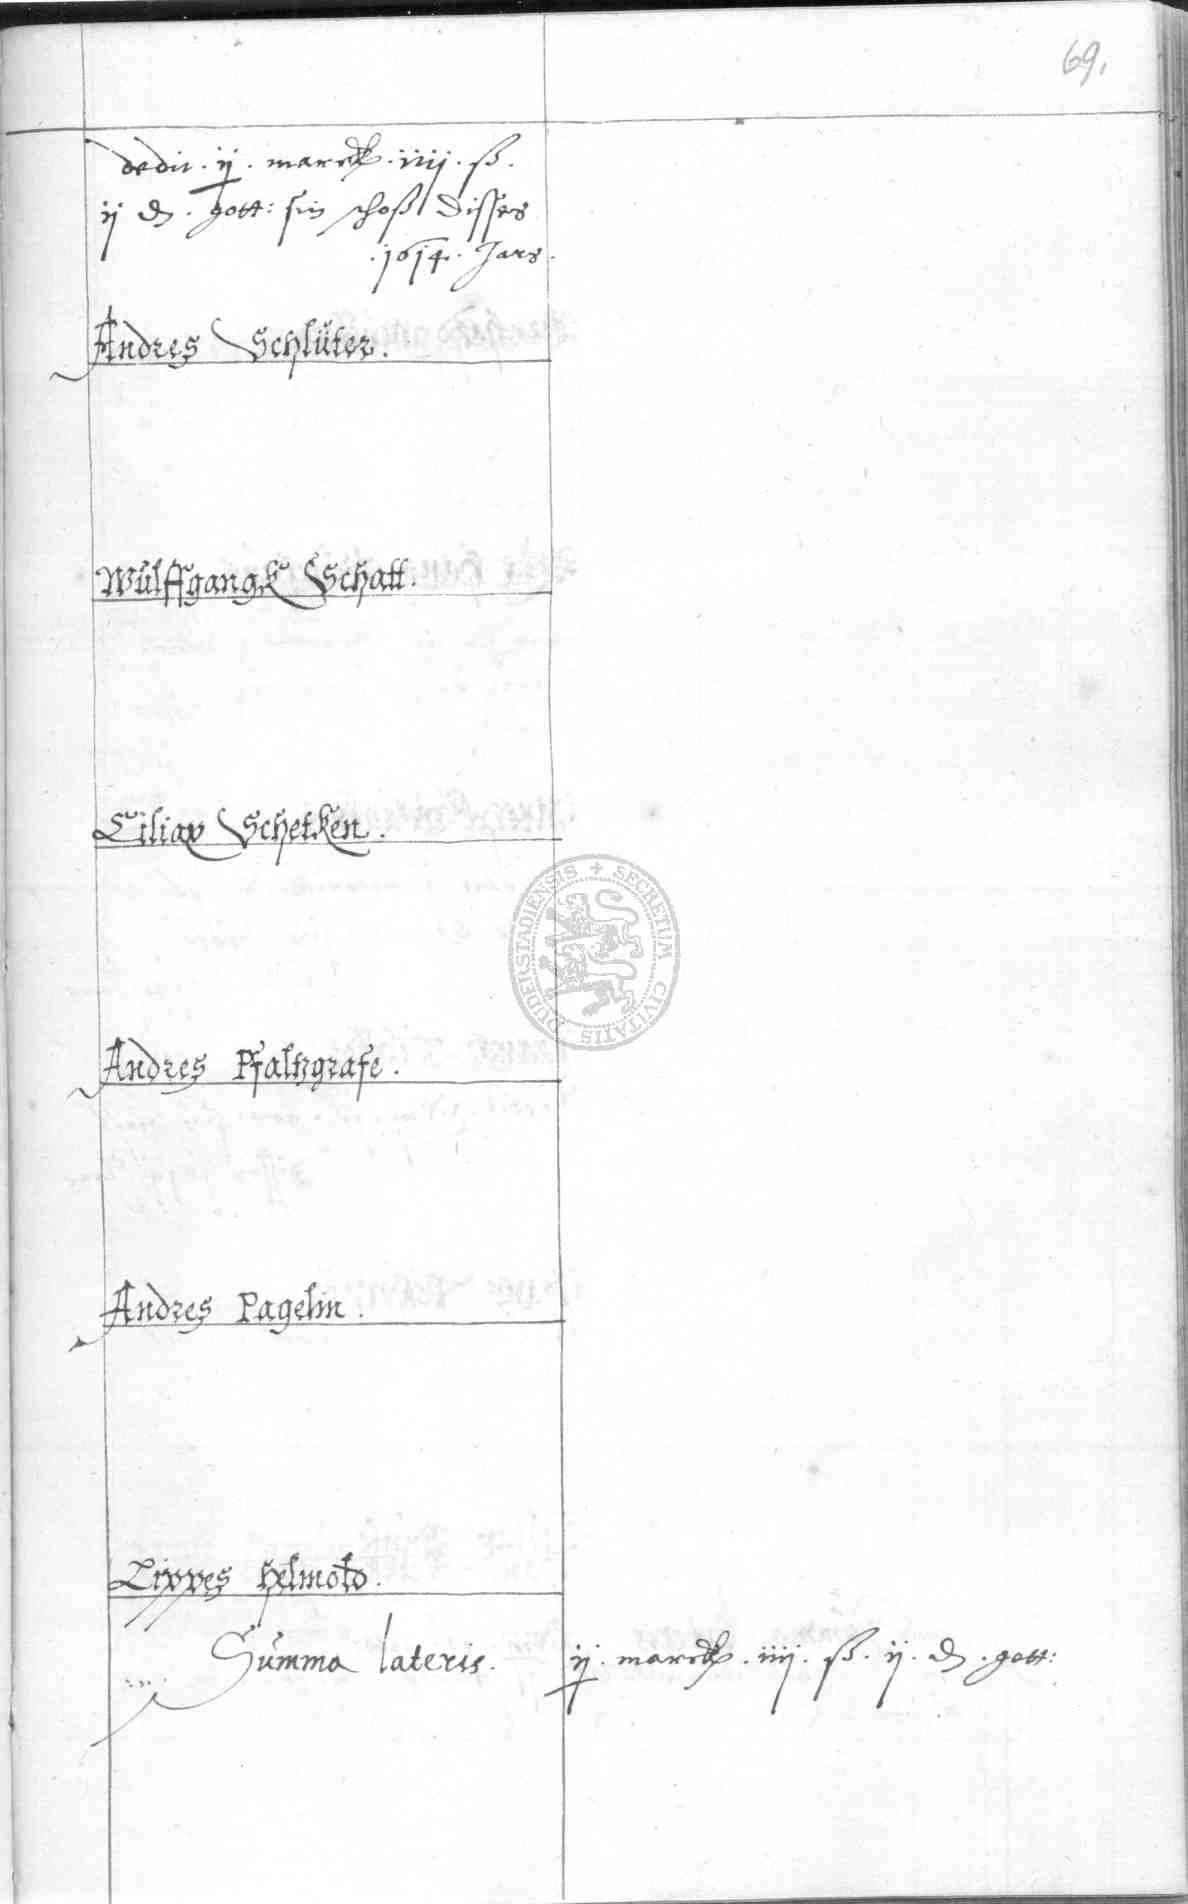 69.
dedit . ij . marck . iiij . ß .
ij d . gott: sin schoß disses
. 1614 . Jars .
Andres Schlüter .
Wulffgangk Schatt .
Ciliax Schetken .
DUDERSTADIENSIS + SECRETUM CIVITATIS
Andres Pfaltzgrafe .
Andres Pagelm .
Lippes Helmold .
Summa lateris . ij . marck . iiij . ß . ij . d . gott: